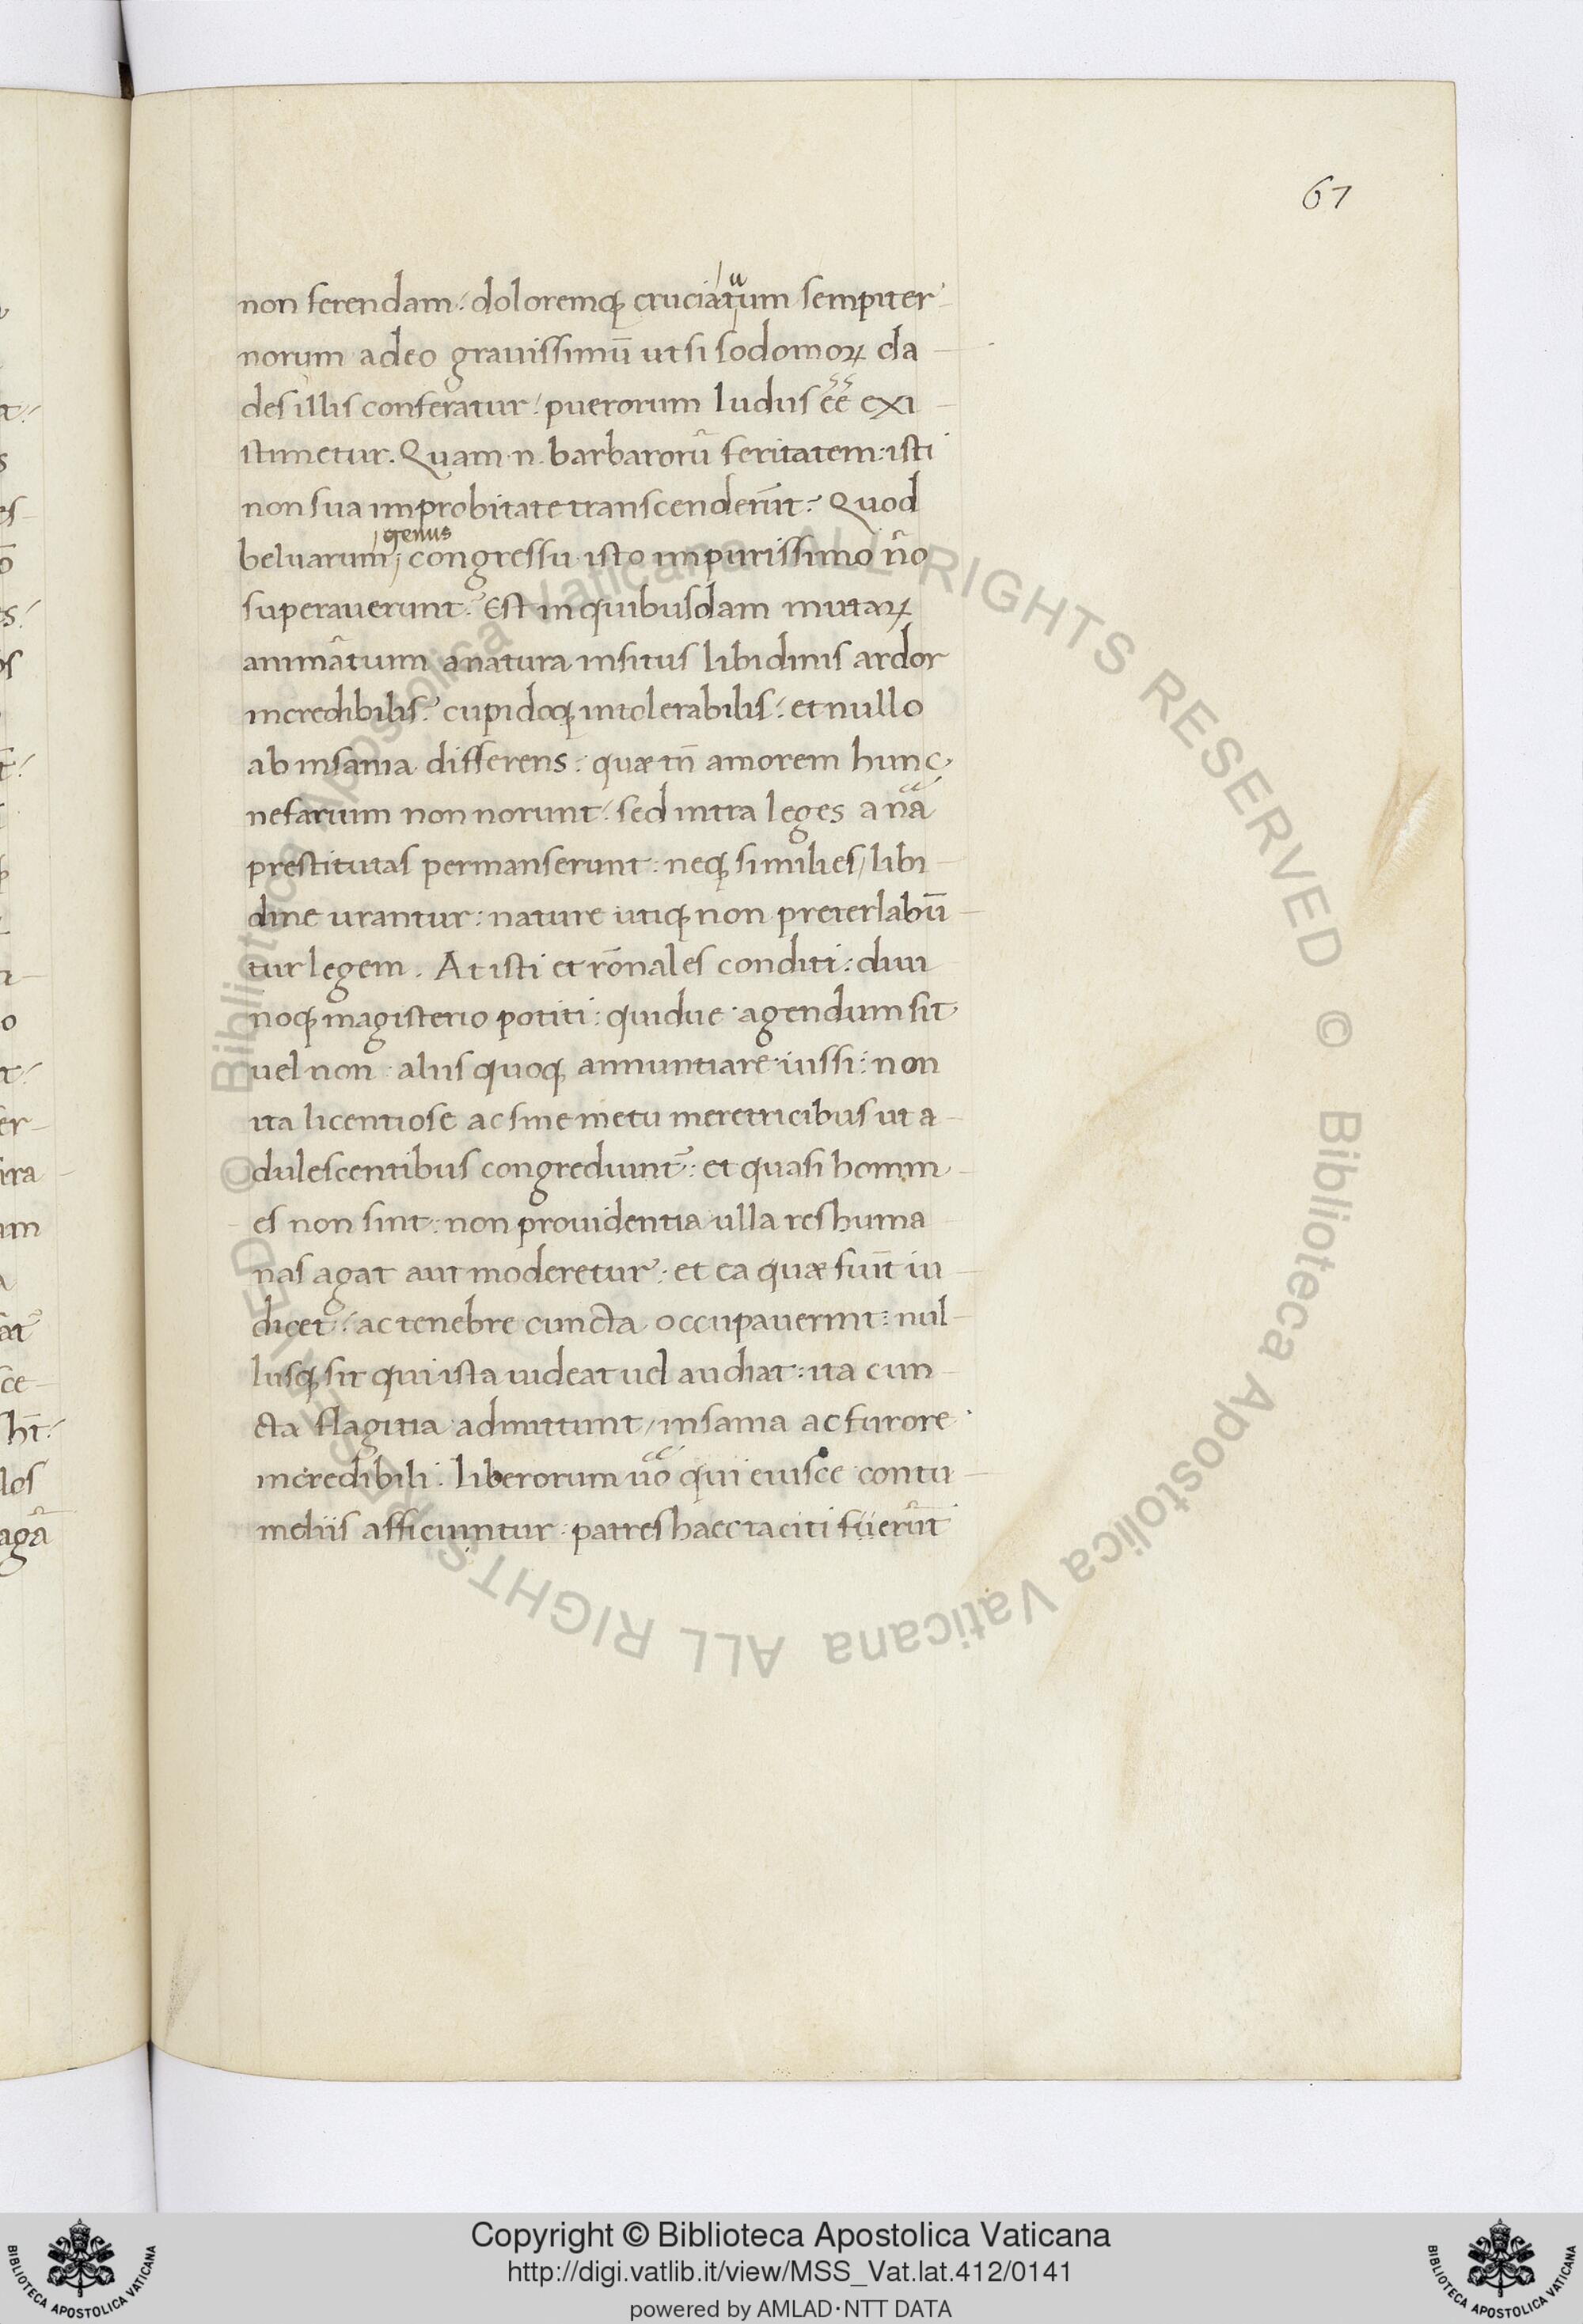 67
non ferendam: doloremq; cruciatuum sempiter
norum adeo grauissimū ut si sodomoꝝ cla
des illis conferatur: puerorum ludus ēē exi
stimetur. Quam .n. barbarorū feritatem: isti
non sua improbitate transcender̄ūt: Quod
beluarum genus congressu isto impurissimo n̄o
superauerunt? Est in quibusdam mutaꝝ
animātum a natura insitus libidinis ardor
incredibilis: cupidoq; intolerabilis: et nullo
ab insania differens: quæ tn̄ amorem hunc
nefarium non norunt: sed intra leges a nā
prestitutas permanserunt: neq; simili es/ libi
dine urantur: nature utiq; non preterlabū
tur legem. At isti et rōnales conditi: diui
noq; magisterio potiti: quidue agendum sit
uel non: aliis quoq; annuntiare iussi: non
ita licentiose ac sine metu meretricibus ut a
dulescentibus congrediunt̄: et quasi homin
es non sint: non prouidentia ulla res huma
nas agat aut moderetur: et ea quæ fiūt iu
dicet: ac tenebre cuncta occupauerint: nul
lusq; sit qui ista uideat uel audiat: ita cun
cta flagitia admittunt/ insania ac furore
incredibili. liberorum uō qui eiusce contu
meliis afficiuntur: patres haec taciti fuerūt
© Biblioteca Apostolica Vaticana ALL RIGHTS RESERVED © Biblioteca Apostolica Vaticana ALL RIGHTS RESERVED
Copyright © Biblioteca Apostolica Vaticana
http://digi.vatlib.it/view/MSS_Vat.lat.412/0141
powered by AMLAD·NTT DATA
BIBLIOTECA APOSTOLICA VATICANA
BIBLIOTECA APOSTOLICA VATICANA